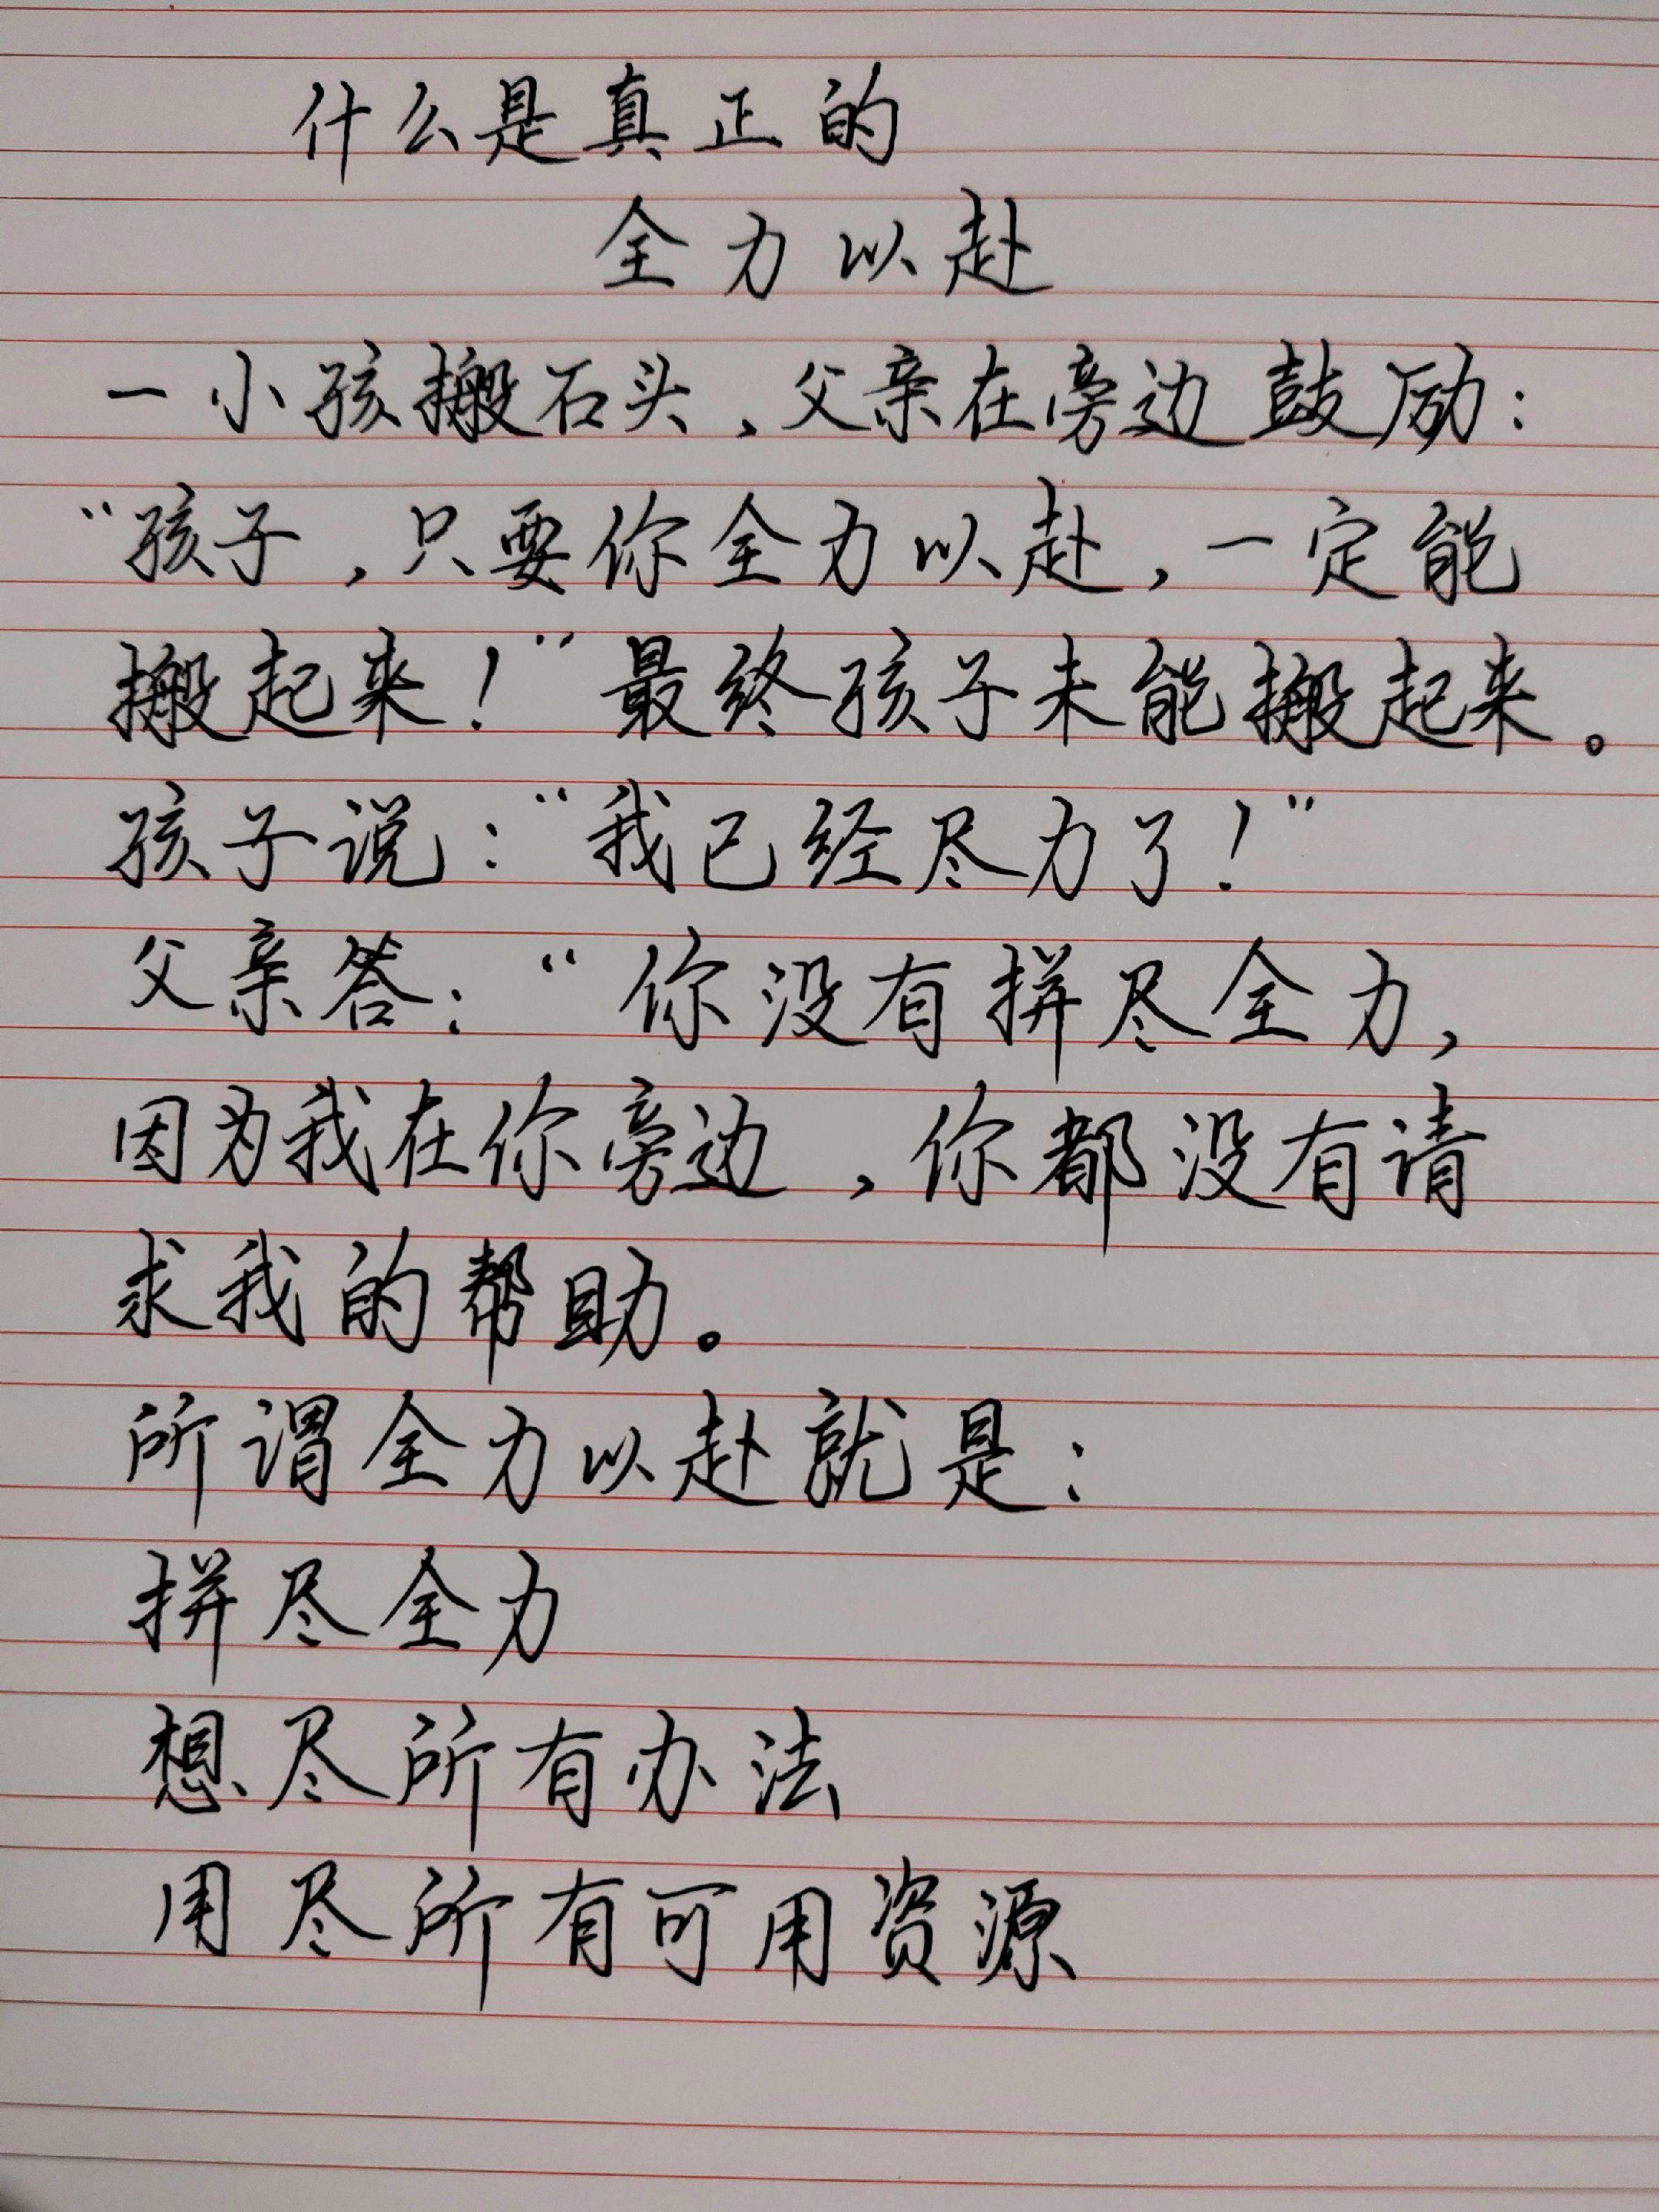 什么是真正的
全力以赴
一小孩搬石头，父亲在旁边鼓励：
“孩子，只要你全力以赴，一定能
搬起来！”最终孩子未能搬起来。
孩子说：“我已经尽力了！”
父亲答：“你没有拼尽全力，
因为我在你旁边，你都没有请
求我的帮助。
所谓全力以赴就是：
拼尽全力
想尽所有办法
用尽所有可用资源